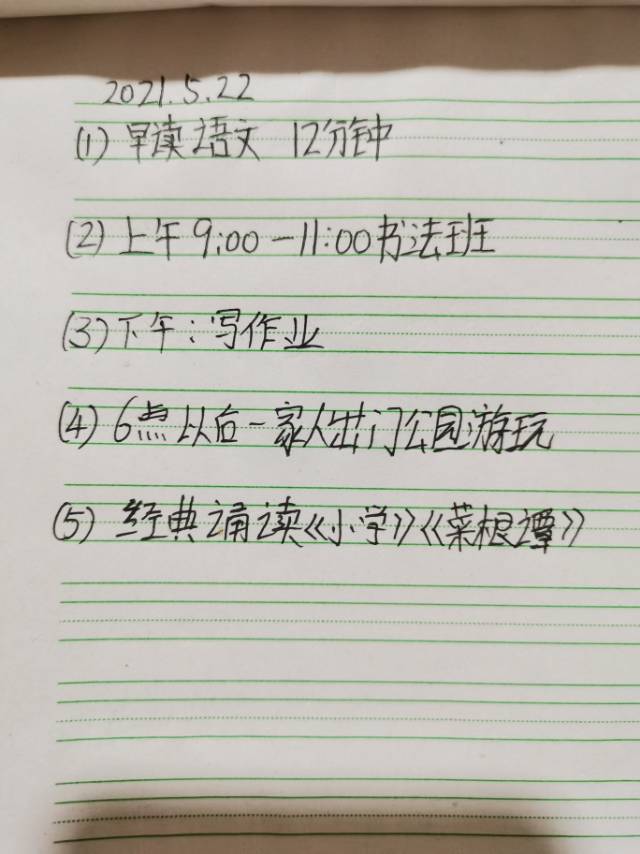 2021.5.22
(1) 早读语文 12分钟
(2) 上午 9:00-11:00书法班
(3) 下午:写作业
(4) 6点以后一家人出门公园游玩
(5) 经典诵读《小学》《菜根谭》